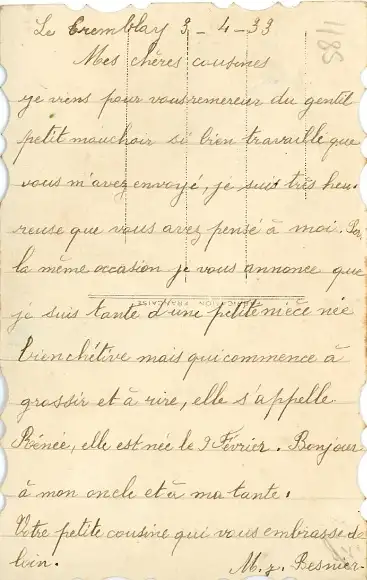 Le Tremblay 3 - 4 - 33
1185
Mes chères cousines
je viens pour vous remercier du gentil
petit mouchoir si bien travaillé que
vous m'avez envoyé, je suis très heu-
reuse que vous avez pensé à moi. Par
la même occasion je vous annonce que
FABRICATION FRANÇAISE
je suis tante d'une petite nièce née
bien chétive mais qui commence à
grossir et à rire, elle s'appelle
Rénée, elle est née le 9 Février. Bonjour
à mon oncle et à ma tante.
Votre petite cousine qui vous embrasse de
loin.
M. J. Besnier.